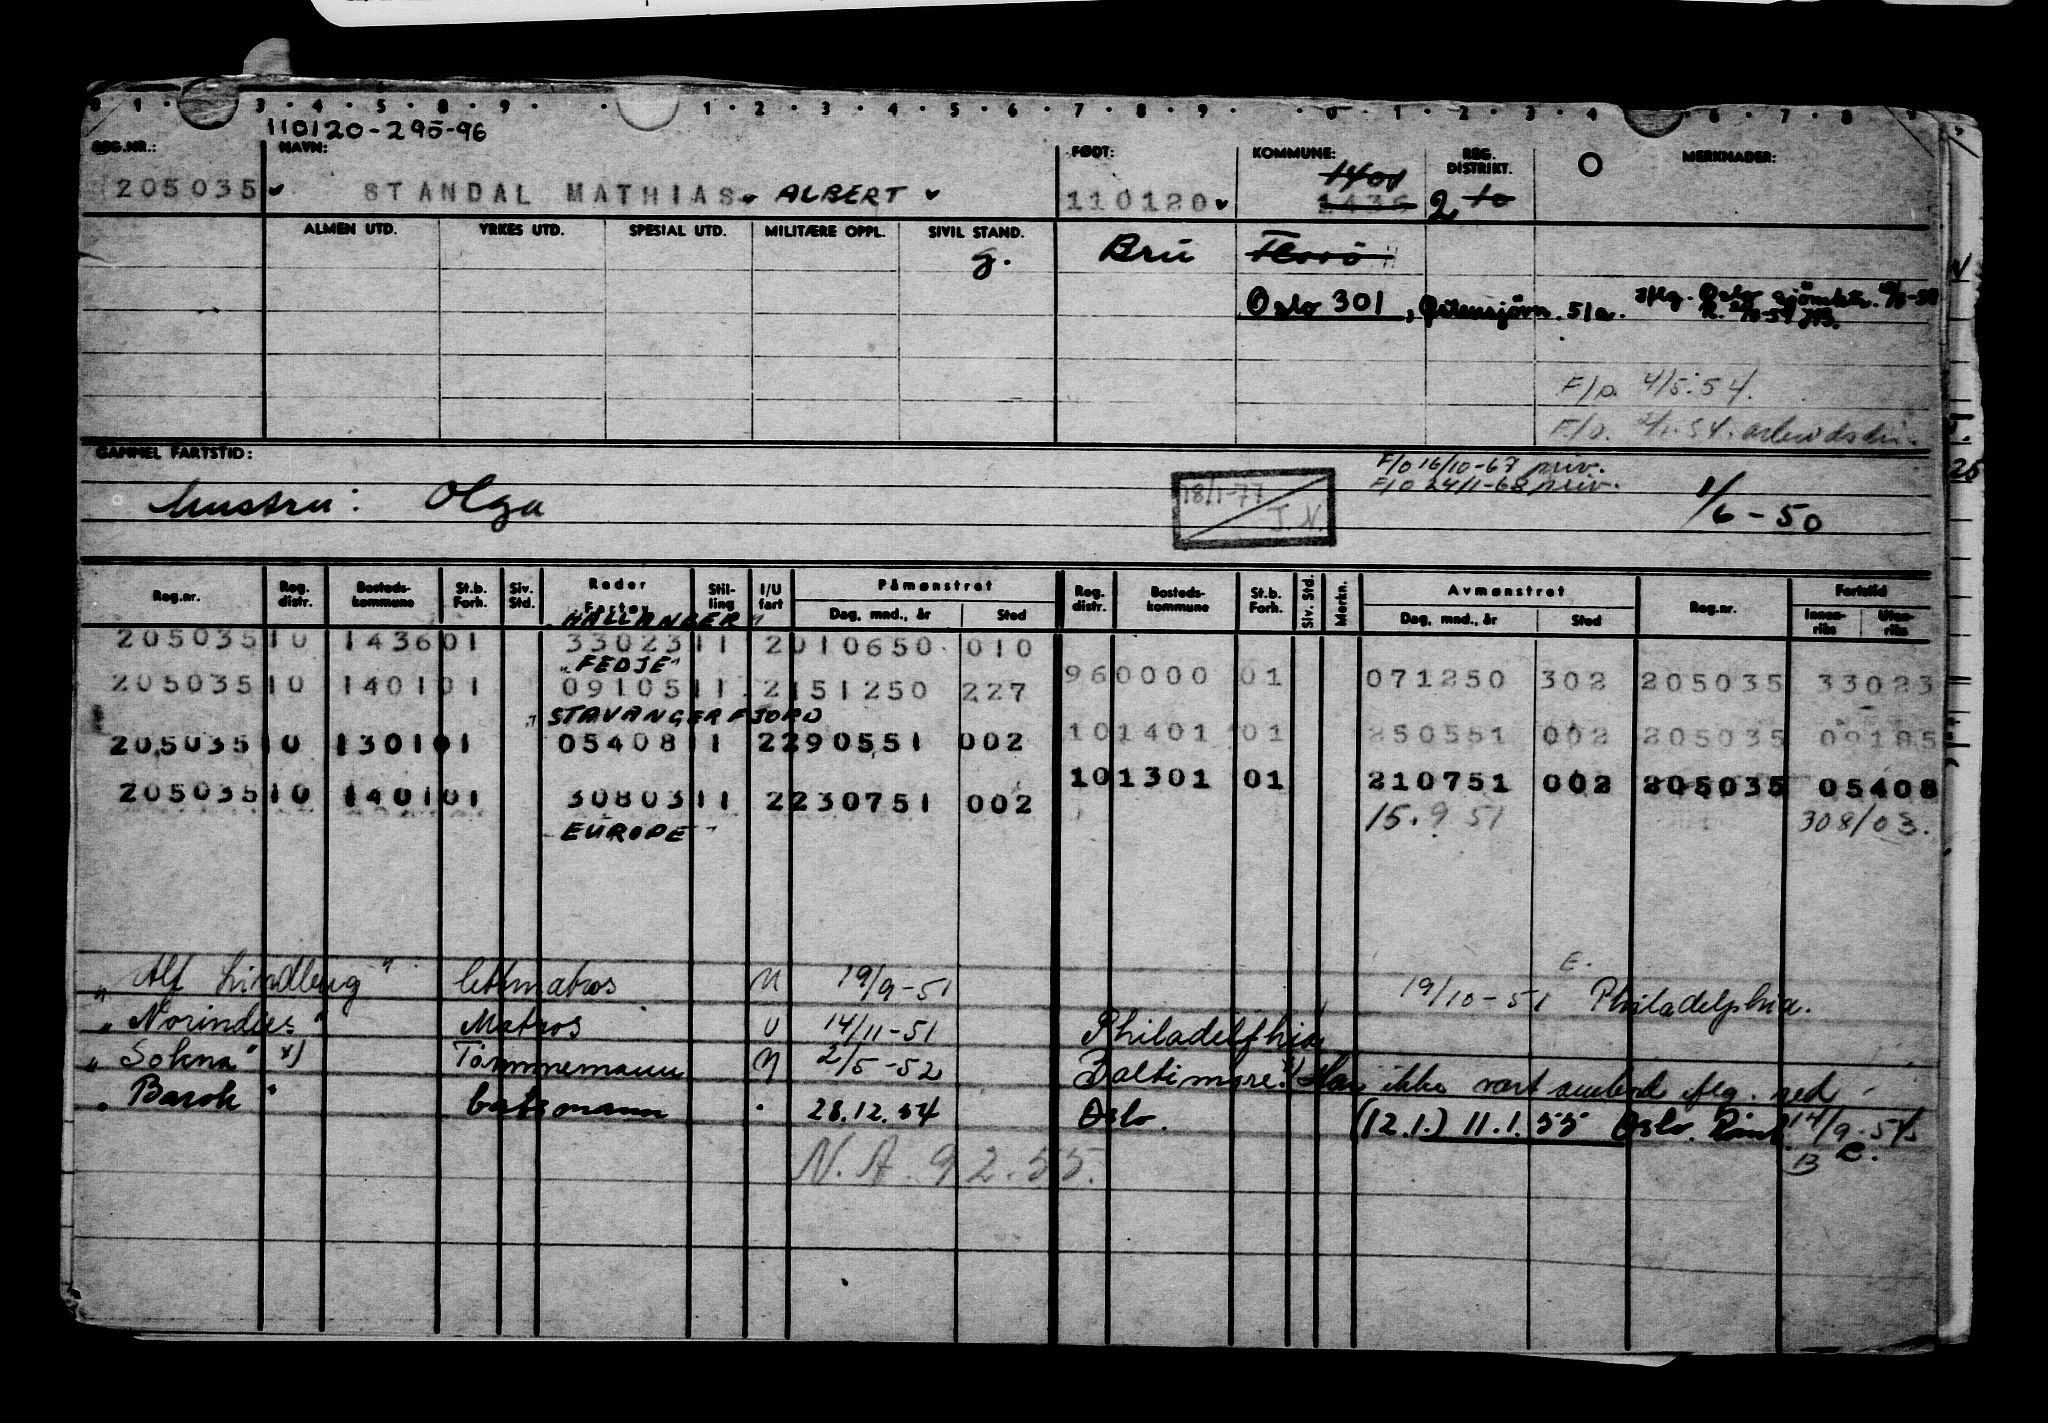 0 1 . 3 . 4 . 5 . 8 . 9 . . 1 . 2 . 3 . 4 . 5 . 6 . 7 . 8 . 9 . . 0 . 1 . 2 . 3 . 4 6 . 7 . 8
110120-295-96
REG.NR.: NAVN: FØDT: KOMMUNE: REG. DISTRIKT. MERKNADER:
1401
205035 STANDAL MATHIAS ALBERT 110120 1436 2 10
ALMEN UTD. YRKES UTD. SPESIAL UTD. MILITÆRE OPPL. SIVIL STAND.
g. Bru Florø
Oslo 301, 51a. Oslo
F/o. 4/5.54.
F/o.
GAMMEL FARTSTID:
F/o 16/10-67 priv.
F/o 24/1-68 priv.
hustru: Olga 18/1-77 J.N. 1/6-50
Reg.nr. Reg. distr. Bosteds-kommune St.b. Forh. Siv. Std. Reder Stil-ling I/U fart Påmønstret Dag, mnd., år Sted Reg. distr. Bosteds-kommune St.b. Forh. Siv. Std. Merkn. Avmønstret Dag, mnd., år Sted Reg.nr. Fartstid Innen-riks Uten-riks
"HALLANGER"
205035 10 1436 01 33023 11 2 010650 010
"FEDJE"
96 0000 01 071250 302 205035 33023
205035 10 1401 01 09105 11 2 151250 227
"STAVANGERFJORD
10 1401 01 250551 002 205035 09105
205035 10 1301 01 05408 11 2 290551 002
10 1301 01 210751 002 205035 05408
205035 10 1401 01 30803 11 2 230751 002
15.9 51 308/03.
EUROPE"
E.
"Alf Lindberg" lettmatros U 19/9-51 19/10-51 Philadelphia.
"Norindies" Matros U 14/11-51 Philadelphia
"Sokna" x) Tømmermann U 2/5-52 Baltimore. x) Har ikke vært ombord iflg. red
"Barok" båtsmann " 28.12.54 Oslo. (12.1.) 11.1.55 Oslo. 14/9-55
B
N.A. 9 2.55.